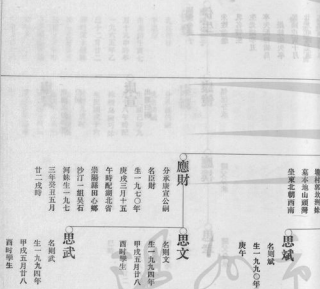 墓本地山頭灣
坐東北朝西南
思斌
名則斌
生一九九〇年
庚午
應財
分承康寅公嗣
名臣財
生一九七〇年
庚戌三月十五
午時配湖北省
崇陽縣田心鄉
沙汀一組吳石
河妹生一九七
三年癸丑五月
廿二戌時
思文
名則文
生一九九四年
甲戌五月廿八
酉時孿生
思武
名則武
生一九九四年
甲戌五月廿八
酉時孿生